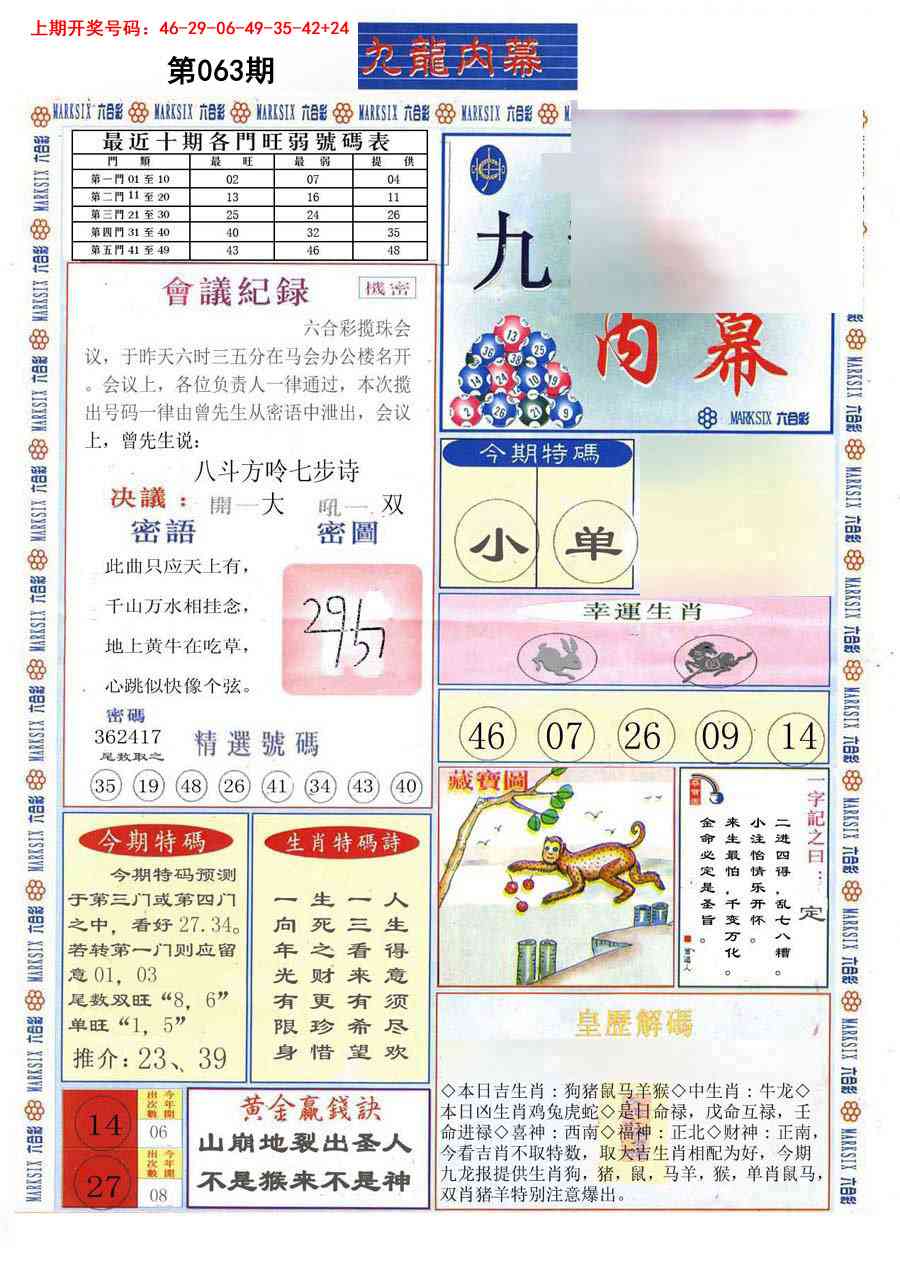 上期开奖号码：46-29-06-49-35-42+24
第063期
九龍内幕
MARKSIX 六合彩 MARKSIX 六合彩 MARKSIX 六合彩 MARKSIX 六合彩 MARKSIX 六合彩
最近十期各門旺弱號碼表
門 類 最 旺 最 弱 提 供
第一門 01 至 10 02 07 04
第二門 11 至 20 13 16 11
第三門 21 至 30 25 24 26
第四門 31 至 40 40 32 35
第五門 41 至 49 43 46 48
九
内幕
13
36 38 25
14 24 10 19
2 26 21 9
MARKSIX 六合彩
會議紀録
機密
六合彩揽珠会
议，于昨天六时三五分在马会办公楼名开
。会议上，各位负责人一律通过，本次揽
出号码一律由曾先生从密语中泄出，会议
上，曾先生说：
八斗方呤七步诗
决議：開一大 吼一双
密語 密圖
此曲只应天上有，
千山万水相挂念，
地上黄牛在吃草，
心跳似快像个弦。
密碼
362417
尾数取之
精選號碼
35 19 48 26 41 34 43 40
今期特碼
小 单
幸運生肖
46 07 26 09 14
藏寶圖
一字記之曰：定
二进四得,乱七八糟。
小注怡情乐开怀。
来生最怕,千变万化。
金命必定是圣旨。
今期特碼
今期特码预测
于第三门或第四门
之中，看好 27.34。
若转第一门则应留
意 01，03
尾数双旺“8，6”
单旺“1，5”
推介：23、39
生肖特碼詩
一生一人
向死三生
年之看得
光财来意
有更有须
限珍希尽
身惜望欢
14 今年開出次數 06
27 今年開出次數 08
黄金贏錢訣
山崩地裂出圣人
不是猴来不是神
皇歷解碼
◇本日吉生肖：狗猪鼠马羊猴◇中生肖：牛龙◇
本日凶生肖鸡兔虎蛇◇是日命禄，戊命互禄，壬
命进禄◇喜神：西南◇福神：正北◇财神：正南，
今看吉肖不取特数，取大吉生肖相配为好，今期
九龙报提供生肖狗，猪，鼠，马羊，猴，单肖鼠马，
双肖猪羊特别注意爆出。